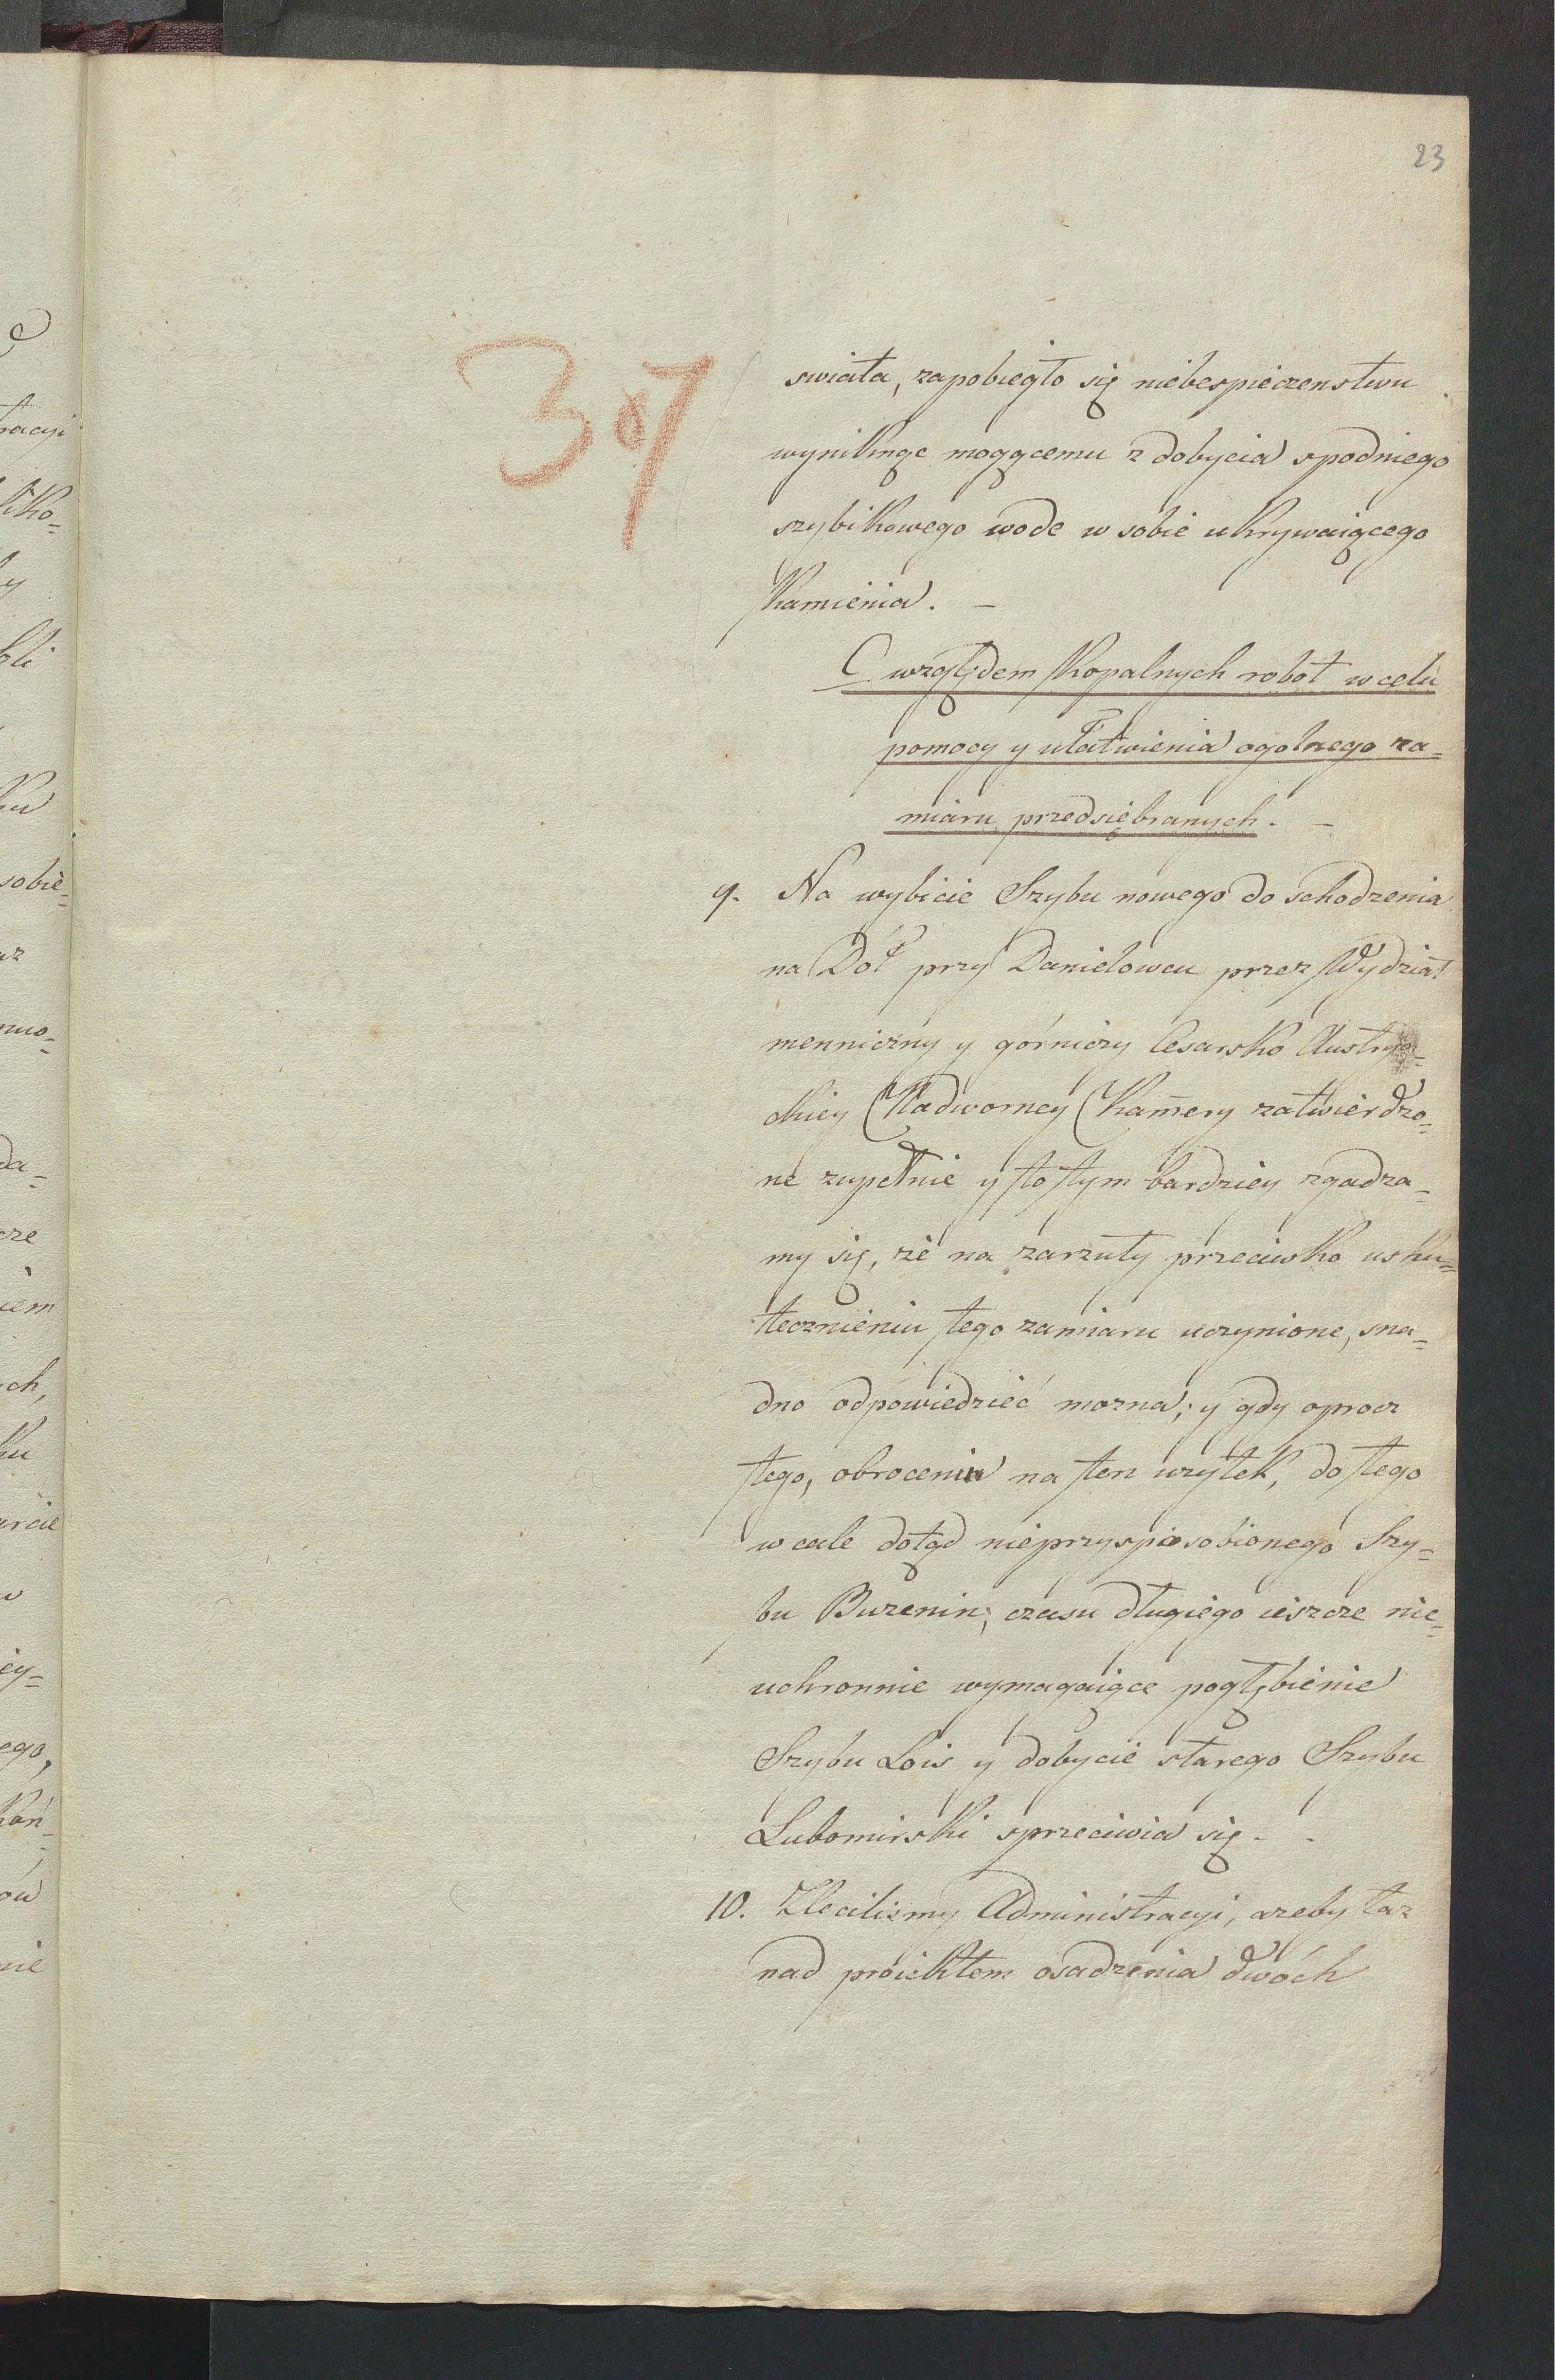 23
307
swiata, zapobiegło się niebespieczenstwu
wyniknąc mogącemu z dobycia spodniego
szybikowego wode w sobie ukrywaiącego
Kamienia. —
C względem Kopalnych robot w celu
pomocy y ułatwienia ogolnego za=
miaru przedsiębranych. —
9. Na wybicie Szybu nowego do schodzenia
na Dół przy Danielowcu przez Wydział
menniczny y górniczy Cesarsko Austrya=
ckiey Nadworney Kamery zatwierdzo=
ne zupełnie y to tym bardziey zgadza=
my się, że na zarzuty przeciwko usku=
tecznieniu tego zamiaru uczynione, sna=
dno odpowiedzieć mozna; y gdy oprocz
tego, obroceniu na ten uzytek, do tego
w cale dotąd nieprzysposobionego Szy=
bu Buzenin; czasu długiego ieszcze nie=
uchronnie wymagaiące pogłębienie
Szybu Lois y dobycie starego Szybu
Lubomirski sprzeciwia się. -
10. Zlecilismy Administracyi, azeby taz
nad proiektem osadzenia dwóch